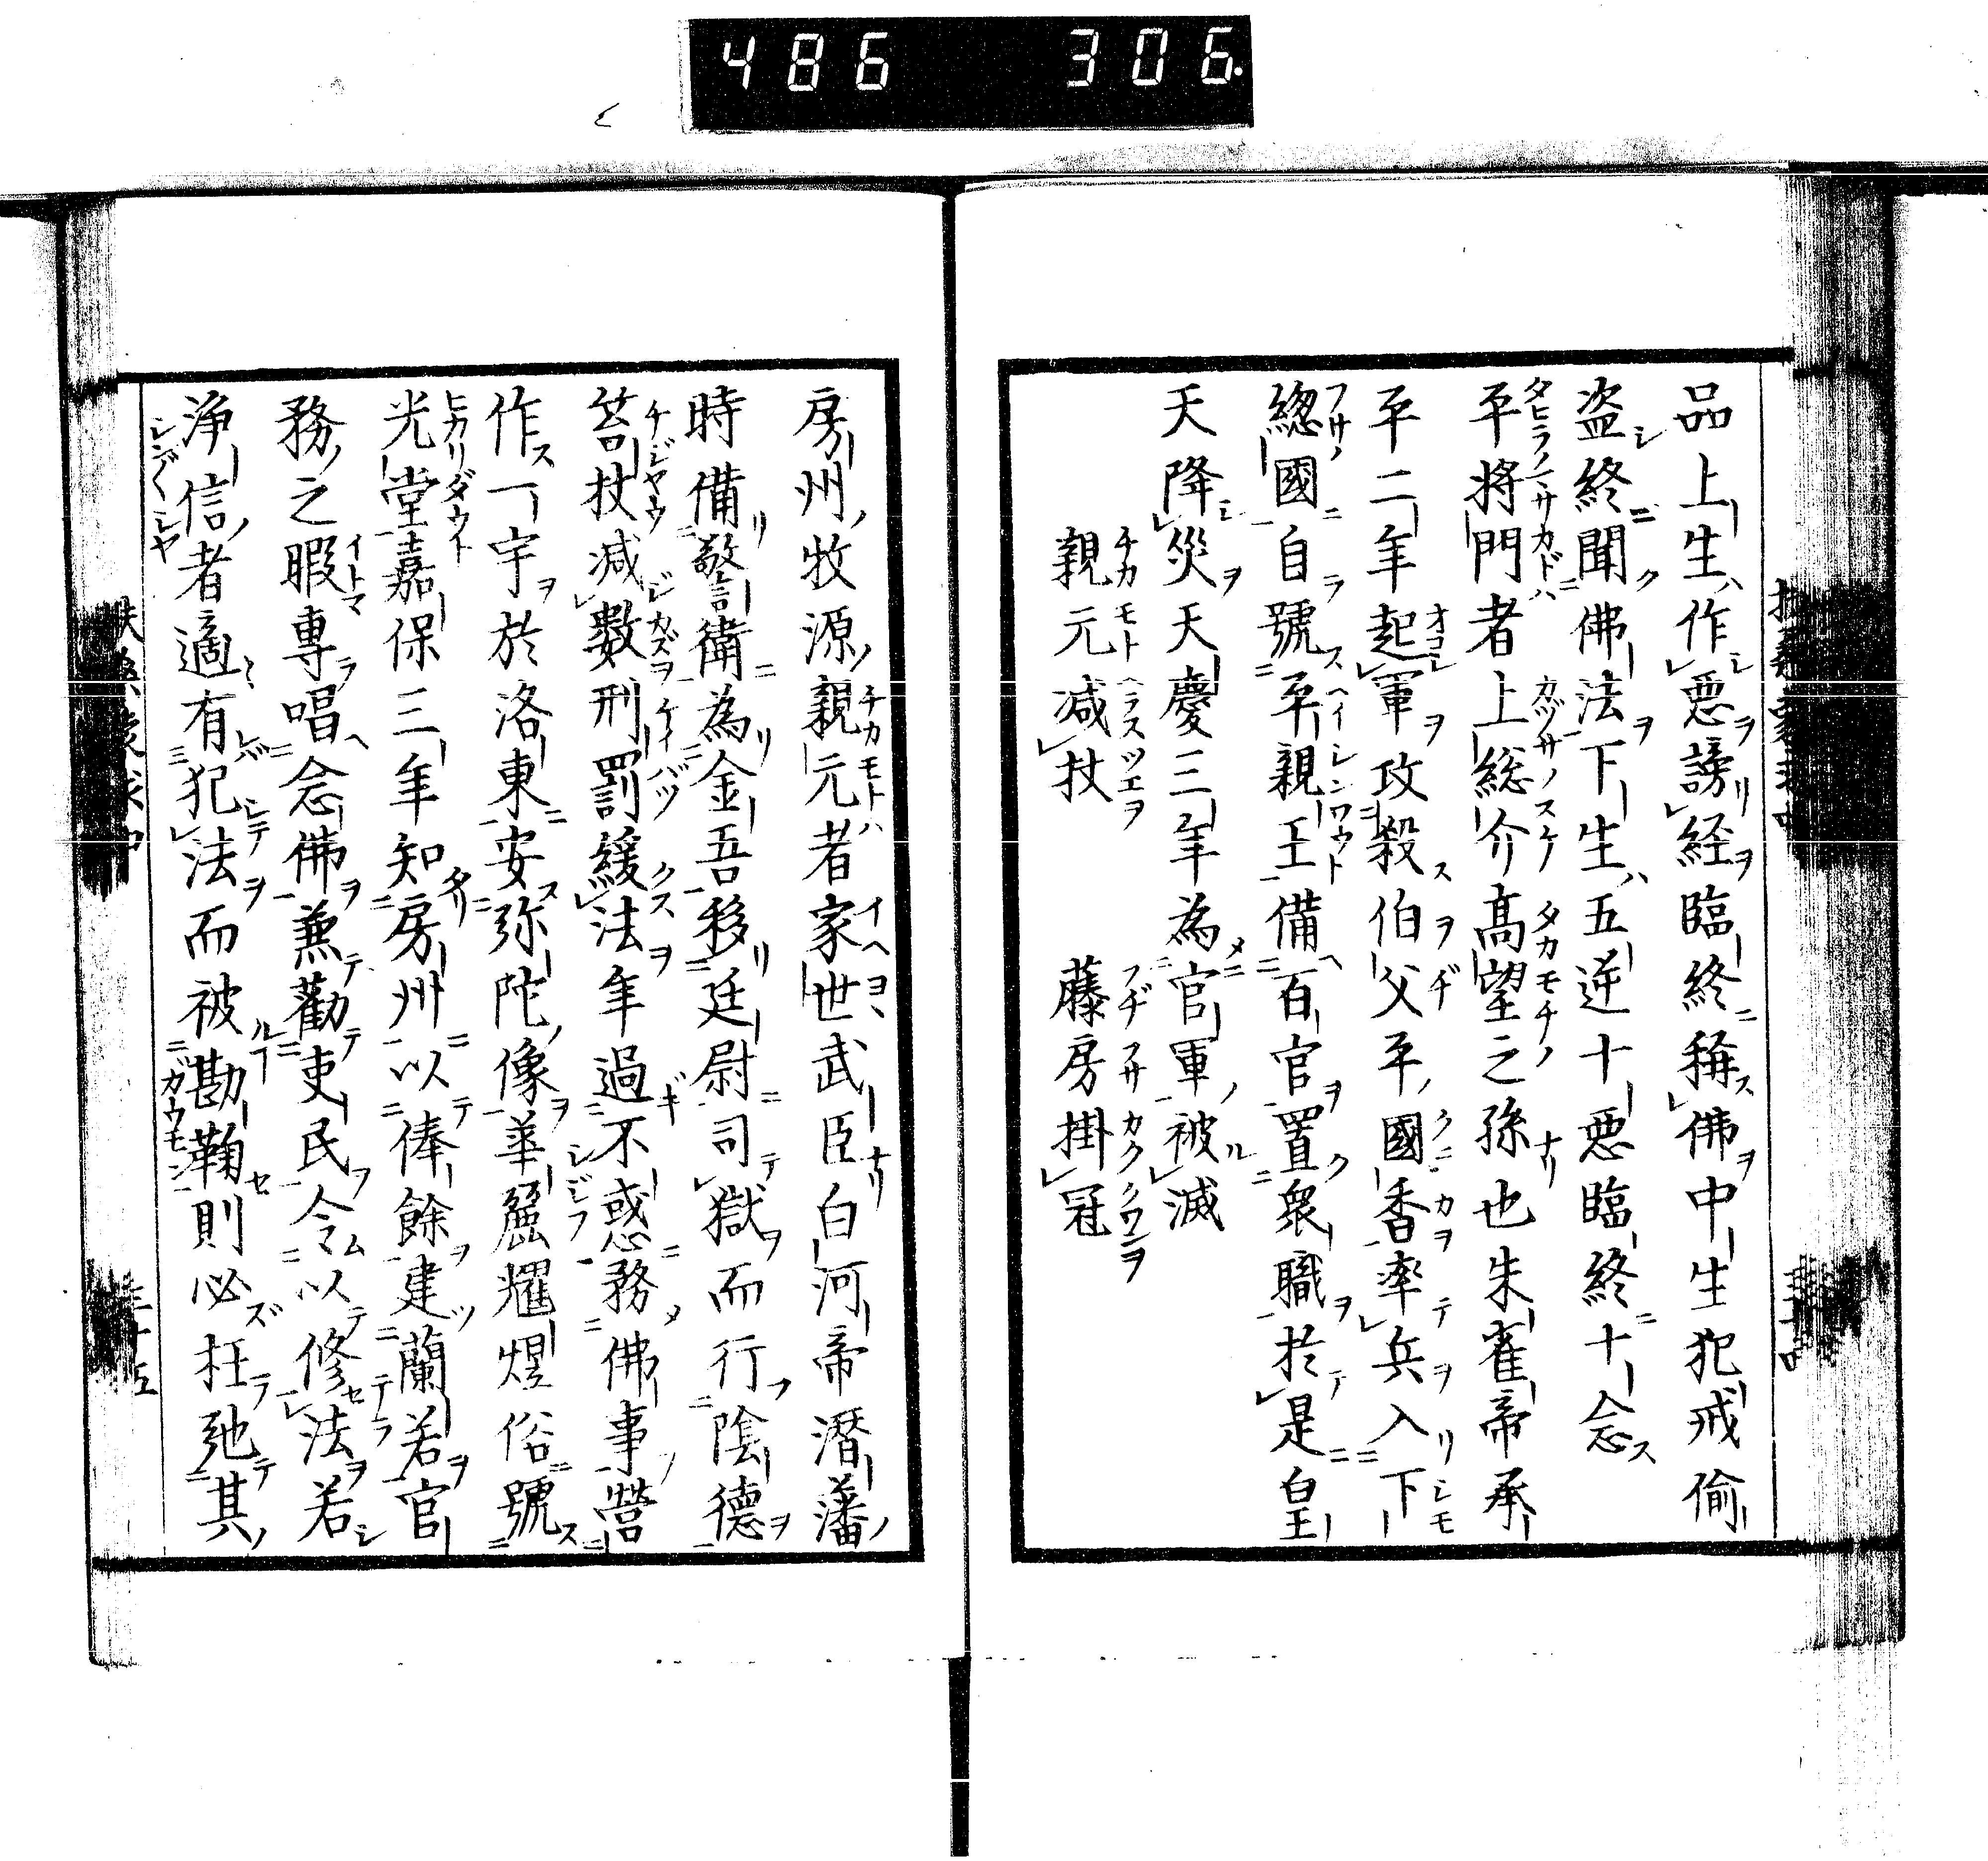 486 306.
品上生作悪謗経臨終稱佛中生犯戒偷
盗終聞佛法下生五逆十悪臨終十念
平將門者上総介髙望之孫也朱雀帝承
平二年起軍攻殺伯父平國香率兵入下
總國自號平親王備百官置衆職於是皇
天降災天慶三年為官軍被滅
親元减杖　藤房掛冠
房州牧源親元者家世武臣白河帝潛藩
時備警衛為金吾移廷尉司獄而行陰德
笞杖减數刑罰緩法年過不惑務佛事營
作一宇於洛東安弥陀像華麗耀煜俗號
光堂嘉保三年知房州以俸餘建蘭若官
務之暇專唱念佛兼勸吏民令以修法若
淨信者適有犯法而被勘鞠則必枉弛其